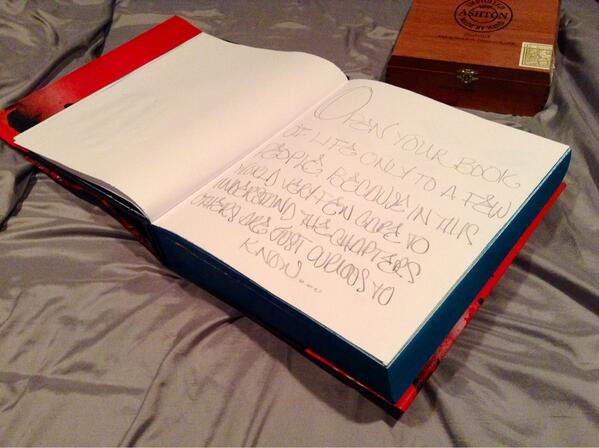 OPEN YOUR BOOK
OF LIFE ONLY TO A FEW
PEOPLE, BECAUSE IN THIS
WORLD VERY FEW CARE TO
UNDERSTAND THE CHAPTERS
OTHERS ARE JUST CURIOUS TO
KNOW....
ASHTON